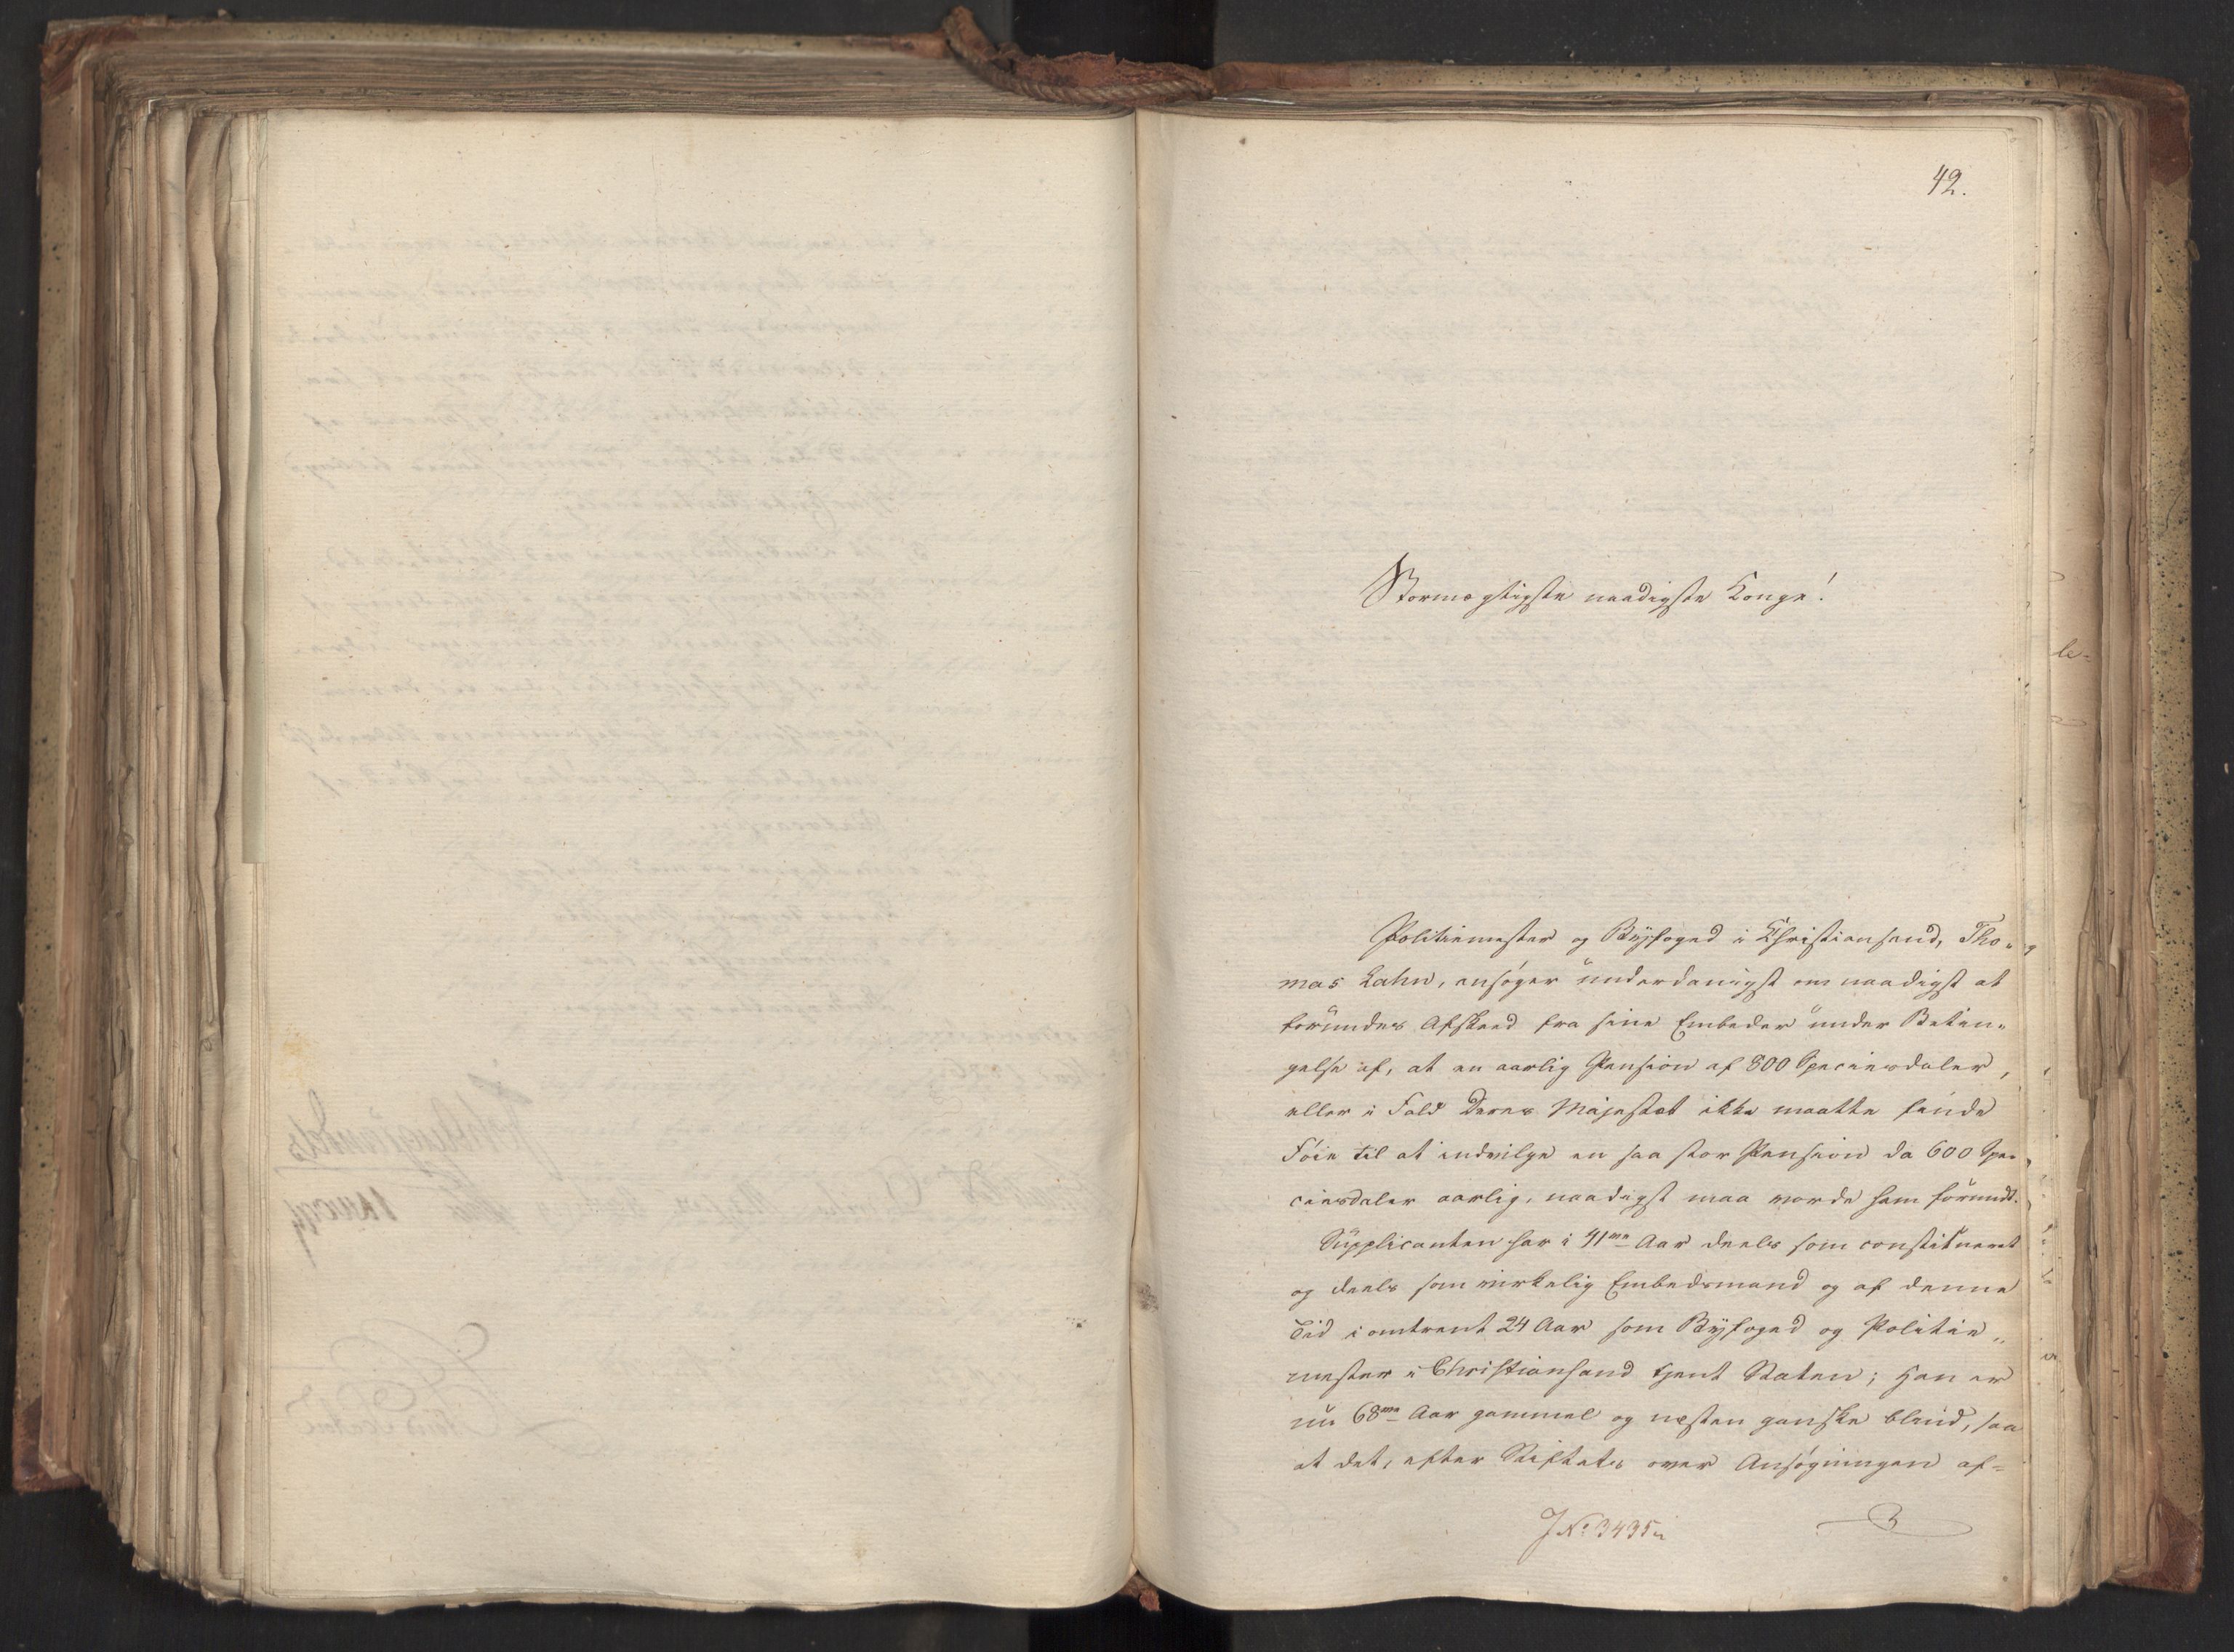 42.
Stormægtigste naadigste Konge!
Politiemester og Byfoged i Christiansand, Tho-
mas Lahn, ansøger underdanigst om naadigst at
forundes Afskeed fra sine Embeder under Betin-
gelse af, at en aarlig Pension af 800 Speciesdaler,
eller i Fald Deres Majestæt ikke maatte finde
Føie til at indvilge en saa stor Pension da 600 Spe-
ciesdaler aarlig, naadigst maa vorde ham forundt.
Supplicanten har i 41me Aar deels som constitueret
og deels som virkelig Embedsmand og af denne
Tid i omtrent 24 Aar som Byfoged og Politie-
mester i Christiansand tjent Staten; han er
nu 68me Aar gammel og næsten ganske blind, saa
at det, efter Stiftets over Ansøgningen af-
J No 3495